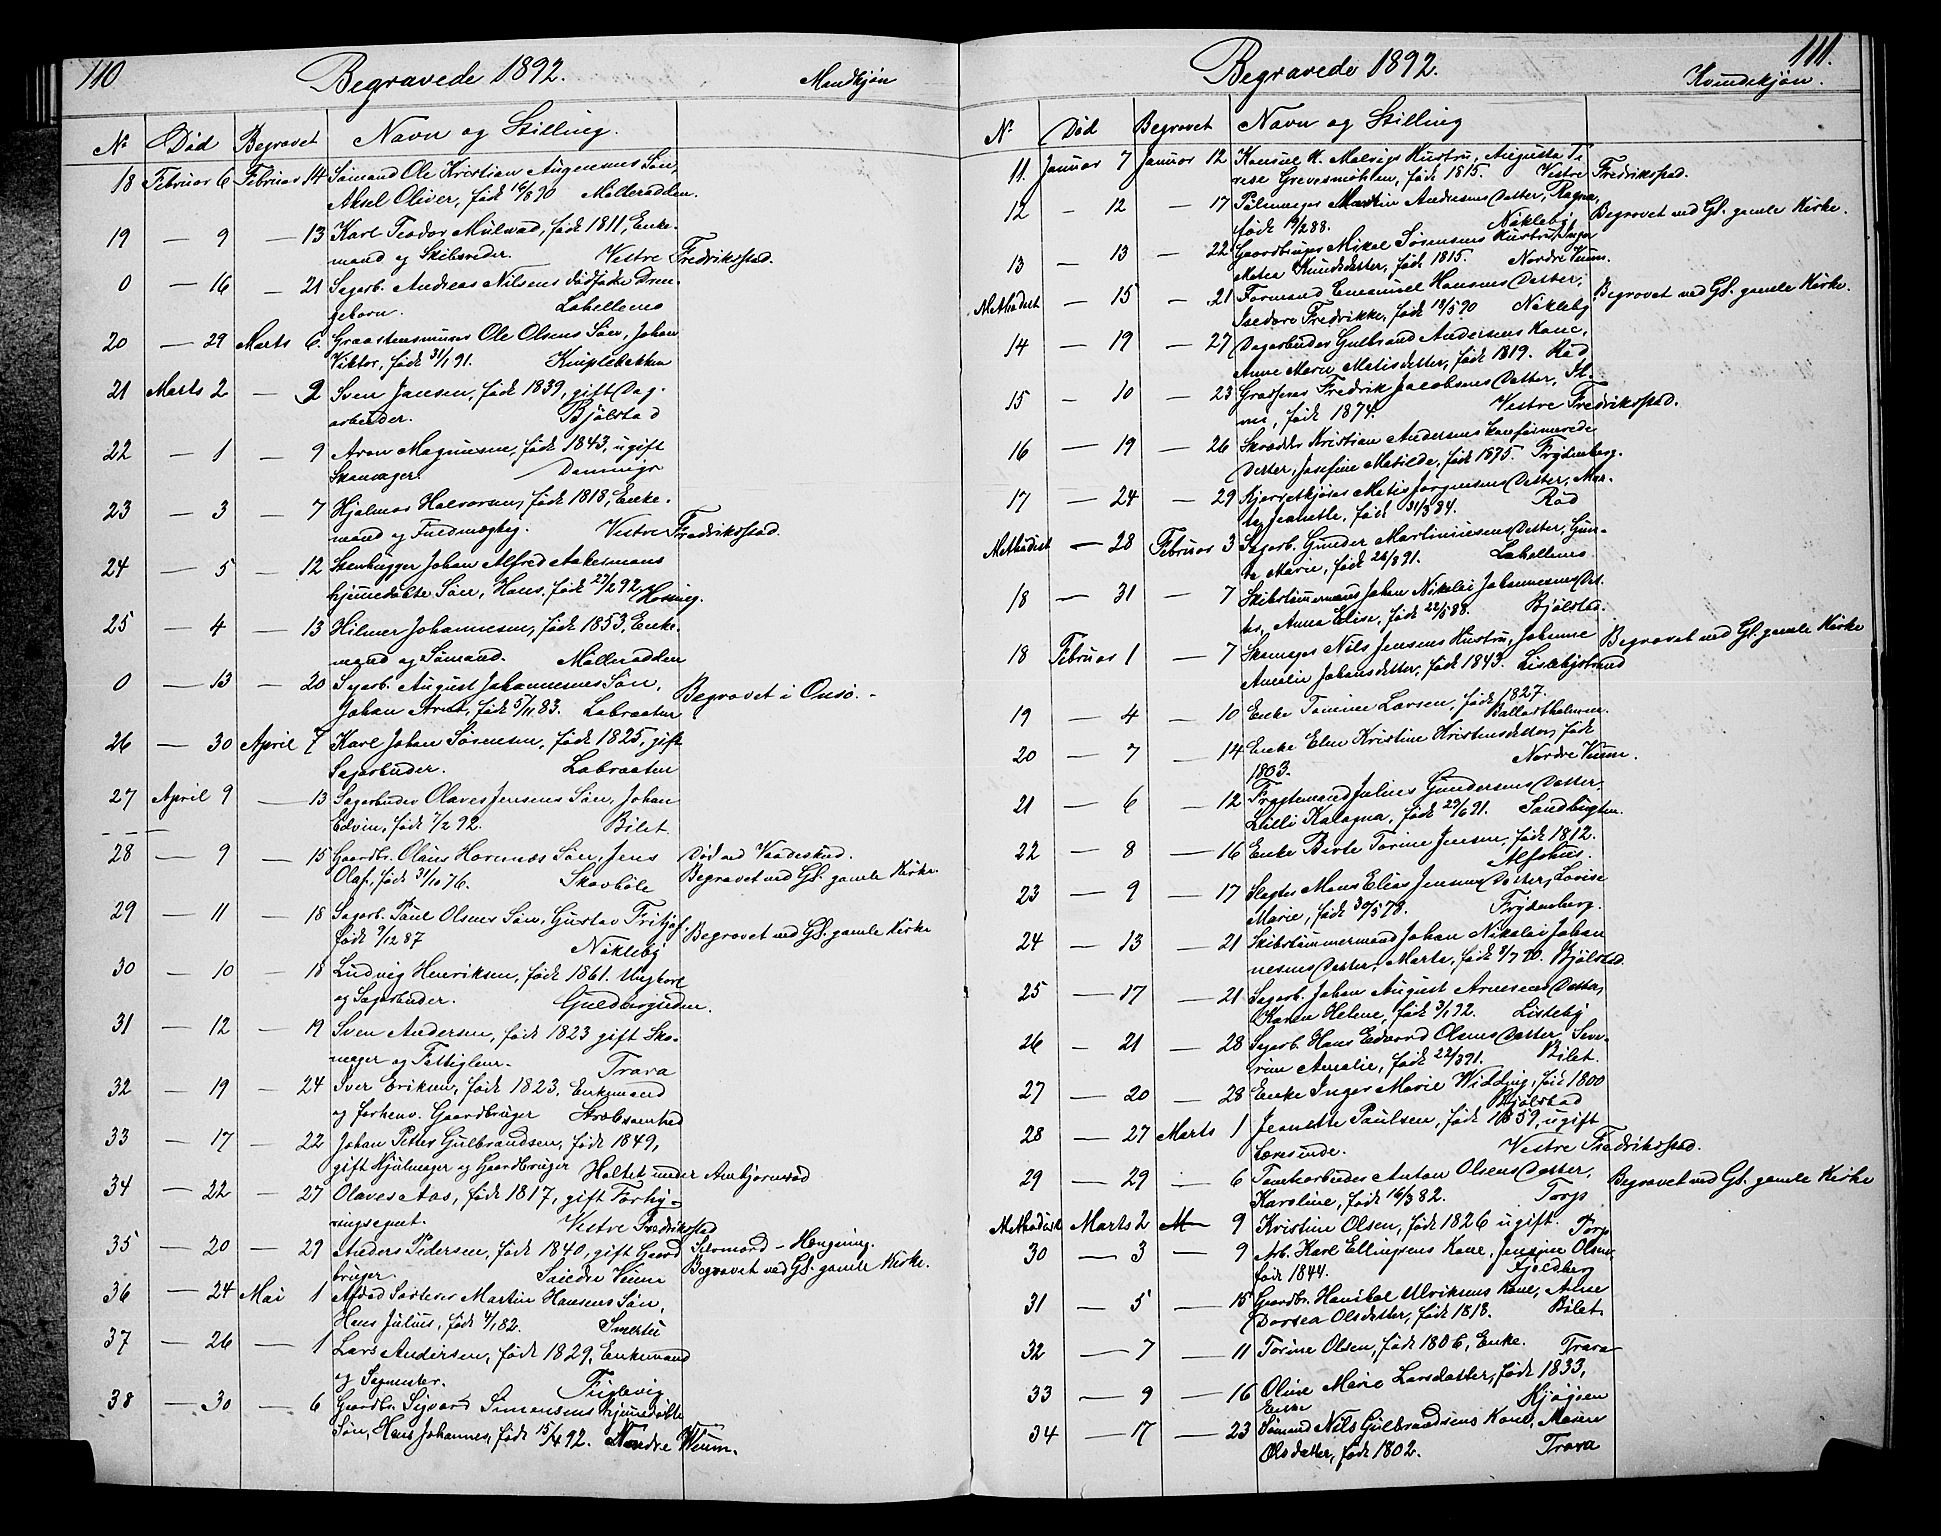 110
Begravede 1892.
Mandkjøn
No Død Begravet Navn og Stilling.
18 Februar 6 Februar 14 Sømand Ole Kristian Augensens Søn,
Aksel Oliver, født 16/8 90 Mølleradden.
19 — 9 — 13 Karl Teodor Mulvad, født 1811, Enke-
mand og Skibsreder. Vestre Fredriksstad.
0 — 16 — 21 Sagarb. Andreas Nilsens dødfødte Dren-
gebarn. Labellens
20 — 29 Marts 6. Graastensmurer Ole Olsens Søn, Johan
Viktor, født 31/1 91. Kniplebakken
21 Marts 2 — 2 Sven Jansen, født 1839, gift Dag-
arbeider. Bjølstad
22 — 1 — 9 Aron Magnusen, født 1843, ugift
Skomager. Damninge
23 — 3 — 7 Hjalmar Halvorsen, født 1818, Enke-
mand og Fuldmægtig. Vestre Fredriksstad.
24 — 5 — 12 Stenhugger Johan Alfred Aakermans
hjemmedøbte Søn, Hans, født 27/2 92.
25 — 4 — 13 Hilmer Johannesen, født 1853, Enke-
mand og Sømand. Mølleradden
0 — 13 — 20 Sagarb. August Johannesens Søn, Begravet i Onsø.
Johan Arnt, født 5/11 83. Labraaten
26 — 30 April 7 Karl Johan Sørensen, født 1825, gift
Sagarbeider. Labraaten
27 April 9 — 13 Sagarbeider Olaves Jensens Søn, Johan
Edvin, født 7/2 92. Bilet.
28 — 9 — 15 Gaardbr. Olaus Hovennæs Søn, Jens Død ved Vaadeskud.
Olaf, født 31/10 76. Skovbøle Begravet ved Gl. gamle Kirke.
29 — 11 — 18 Sagarb. Paul Olsens Søn, Gustav Fritjof,
født 9/12 87 Nøkleby Begravet ved Gl. gamle Kirke
30 — 10 — 18 Ludvig Henriksen, født 1861. Ungkarl
og Sagarbeider. Guldbergsiden.
31 — 12 — 19 Sven Andersen, født 1823 gift Sko-
mager og Fattiglem. Trara
32 — 19 — 24 Iver Eriksen, født 1823, Enkemand
og forhenv. Gaardbruger Stræbsomhed
33 — 17 — 22 Johan Petter Gulbrandsen, født 1849,
gift Hjulmager og Gaardbruger Holtet under Ambjørnrød
34 — 22 — 27 Olaves Aas, født 1817, gift Forhy-
ringsagent. Vestre Fredriksstad
35 — 20 — 29 Anders Pedersen, født 1840, gift Gaard Selvmord - Hængning.
bruger. Veum Begravet ved Gl. gamle Kirke.
36 — 24 Mai 1 Afdød Sorterer Martin Hansens Søn,
Hans Julius, født 4/1 82. Smertu
37 — 26 — 1 Lars Andersen, født 1829, Enkemand
og Sagmester. Fuglevig
38 — 30 — 6 Gaardbr. Sigvard Simensens hjemmedøbte
Søn, Hans Johannes, født 15/4 92. Nordre Veum.
111.
Begravede 1892.
Kvindekjøn.
No Død Begravet Navn og Stilling
11. Januar 7 Januar 12 Konsul H. Malvigs Hustru, Augusta Te-
rese Grevesmøhlen, født 1815. Vestre Fredriksstad.
12 — 12 — 17 Pølsemager Martin Andresens Datter, Ragna
født 19/2 88. Nøkleby Begravet ved Gl. gamle Kirke.
13 — 13 — 22 Gaardbruger Mikal Sørensens Hustru, Inger
Matea Knudsdatter, født 1815. Nordre Veum.
Methodist — 15 — 21 Formand Emanuel Hansens Datter,
Isadora Fredrikke, født 18/5 90 Nøkleby Begravet ved Gl. gamle Kirke.
14 — 19 — 27 Dagarbeider Gulbrand Andersens Kone,
Anne Marie Matisdatter, født 1819. Rød
15 — 10 — 23 Grosserer Fredrik Jacobsens Datter,
født 1874. Vestre Fredriksstad.
16 — 19 — 26 Skrædder Kristian Andersens konfirmerede
Datter, Josefine Matilde, født 1875. Frydenberg.
17 — 24 — 29 Kjørretkjører Matis Jørgensens Datter, Mar-
ta Jeanette, født 31/3 84. Rød
Methodist — 28 Februar 3 Sagarb. Gunder Martiniusens Datter, Gun-
da Marie, født 26/8 91. Labellens
18 — 31 — 7 Skibstømmermand Johan Nikolai Johannesens Dat-
ter, Anna Elise, født 22/5 88. Bjølstad.
18 Februar 1 — 7 Skomager Nils Jensens Hustru, Johanne Begravet ved Gl. gamle Kirke
Amalie Johansdatter, født 1843. Lisebystrand
19 — 4 — 10 Enke Tomine Larsen, født 1827.
Ballastholmen.
20 — 7 — 14 Enke Elen Kristine Kristensdatter, født
1803. Nordre Veum.
21 — 6 — 12 Fragtemand Julius Gundersens Datter,
Lilli Kalagna, født 29/6 91. Sandbugten
22 — 8 — 16 Enke Berte Torine Jensen, født 1812.
Alfshus.
23 — 9 — 17 Slagter Mons Elias Jensens Datter, Lovise
Marie, født 30/5 78. Frydenberg.
24 — 13 — 21 Skibstømmermand Johan Nikolai Johan
nesens Datter, Marta, født 8/7 90. Bjølstad.
25 — 17 — 21 Sagarb. Johan August Arnesens Datter,
Karen Helene, født 3/1 92. Lisleby
26 — 21 — 28 Sagarb. Hans Edvard Olsens Datter, Seve-
rine Amalie, født 22/3 91. Bilet.
27 — 20 — 28 Enke Inger Marie Widding, født 1800
Bjølstad
28 — 27 Marts 1 Jeanette Paulsen, født 1859, ugift
Lærerinde. Vestre Fredriksstad.
29 — 29 — 6 Tomtearbeider Anton Olsens Datter, Begravet ved Gl. gamle Kirke
Karoline, født 16/3 82. Torp
Methodist Marts 2 M— 9 Kristine Olsen, født 1826 ugift. Torp
30 — 3 — 9 Arb. Karl Ellingsens Kone, Jensine Olsen
født 1844. Fjeldberg
31 — 5 — 15 Gaardbr. Hanibal Ulriksens Kone, Anne
Dorsea Olsdatter, født 1818. Bilet.
32 — 7 — 11 Torine Olsen, født 1806, Enke. Trara
33 — 9 — 16 Oline Marie Larsdatter, født 1833,
Enke Kjøgsen
34 — 17 — 23 Sømand Nils Gulbrandsens Kone, Maren
Olsdatter, født 1802. Trara